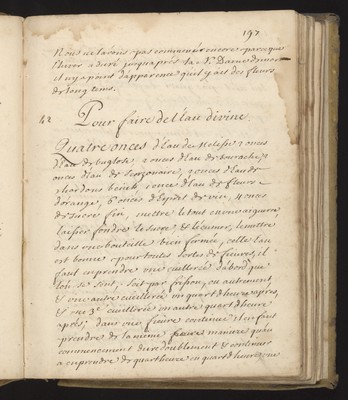 197
Nous ne l'avons pas commencer encore, parce que
l'hiver a duré jusqu'après la N. Dame de mars
il n'y a point d'apparence qu'il y ait des fleurs
de long tems.
42
Pour faire de l'Eau divine
Quatre onces d'Eau de Melisse, 2 onces
d'Eau de buglose, 2 onces d'Eau de bourache, 2
onces d'Eau de scorzonaire, 2 onces d'Eau de
chardons benits, 1 once d'Eau de fleurs
d'orange, 6 onces d'Esprit de vin, 4 onces
de sucre fin, mettre le tout en une aiguiere,
laisser fondre le sucre & l'écumer, le mettre
dans une bouteille bien fermée, cette Eau
est bonne pour toutes sortes de fievres, il
faut en prendre une cuillerée d'abord que
l'on se sent, soit par frisson, ou autrement,
& une autre cuillerée un quart d'heure après,
& une 3e cuillerée un autre quart d'heure
après; dans une fievre continue il en faut
prendre de la même maniere qu'au
commencement du redoublement & continuer
a en prendre de quart heure en quart d'heure, une